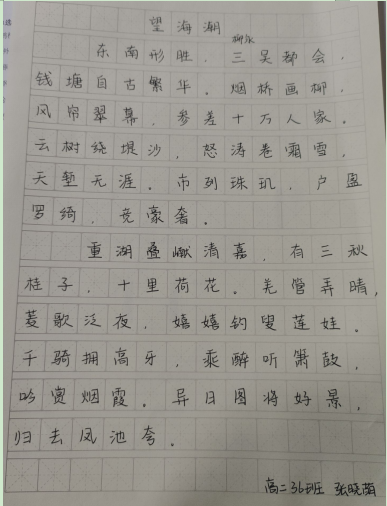 望海潮
柳永
东南形胜，三吴都会，
钱塘自古繁华。烟桥画柳，
风帘翠幕，参差十万人家。
云树绕堤沙，怒涛卷霜雪，
天堑无涯。市列珠玑，户盈
罗绮，竞豪奢。
重湖叠巘清嘉，有三秋
桂子，十里荷花。羌管弄晴，
菱歌泛夜，嬉嬉钓叟莲娃。
千骑拥高牙，乘醉听箫鼓，
吟赏烟霞。异日图将好景，
归去凤池夸。
高二36班 张晓菌